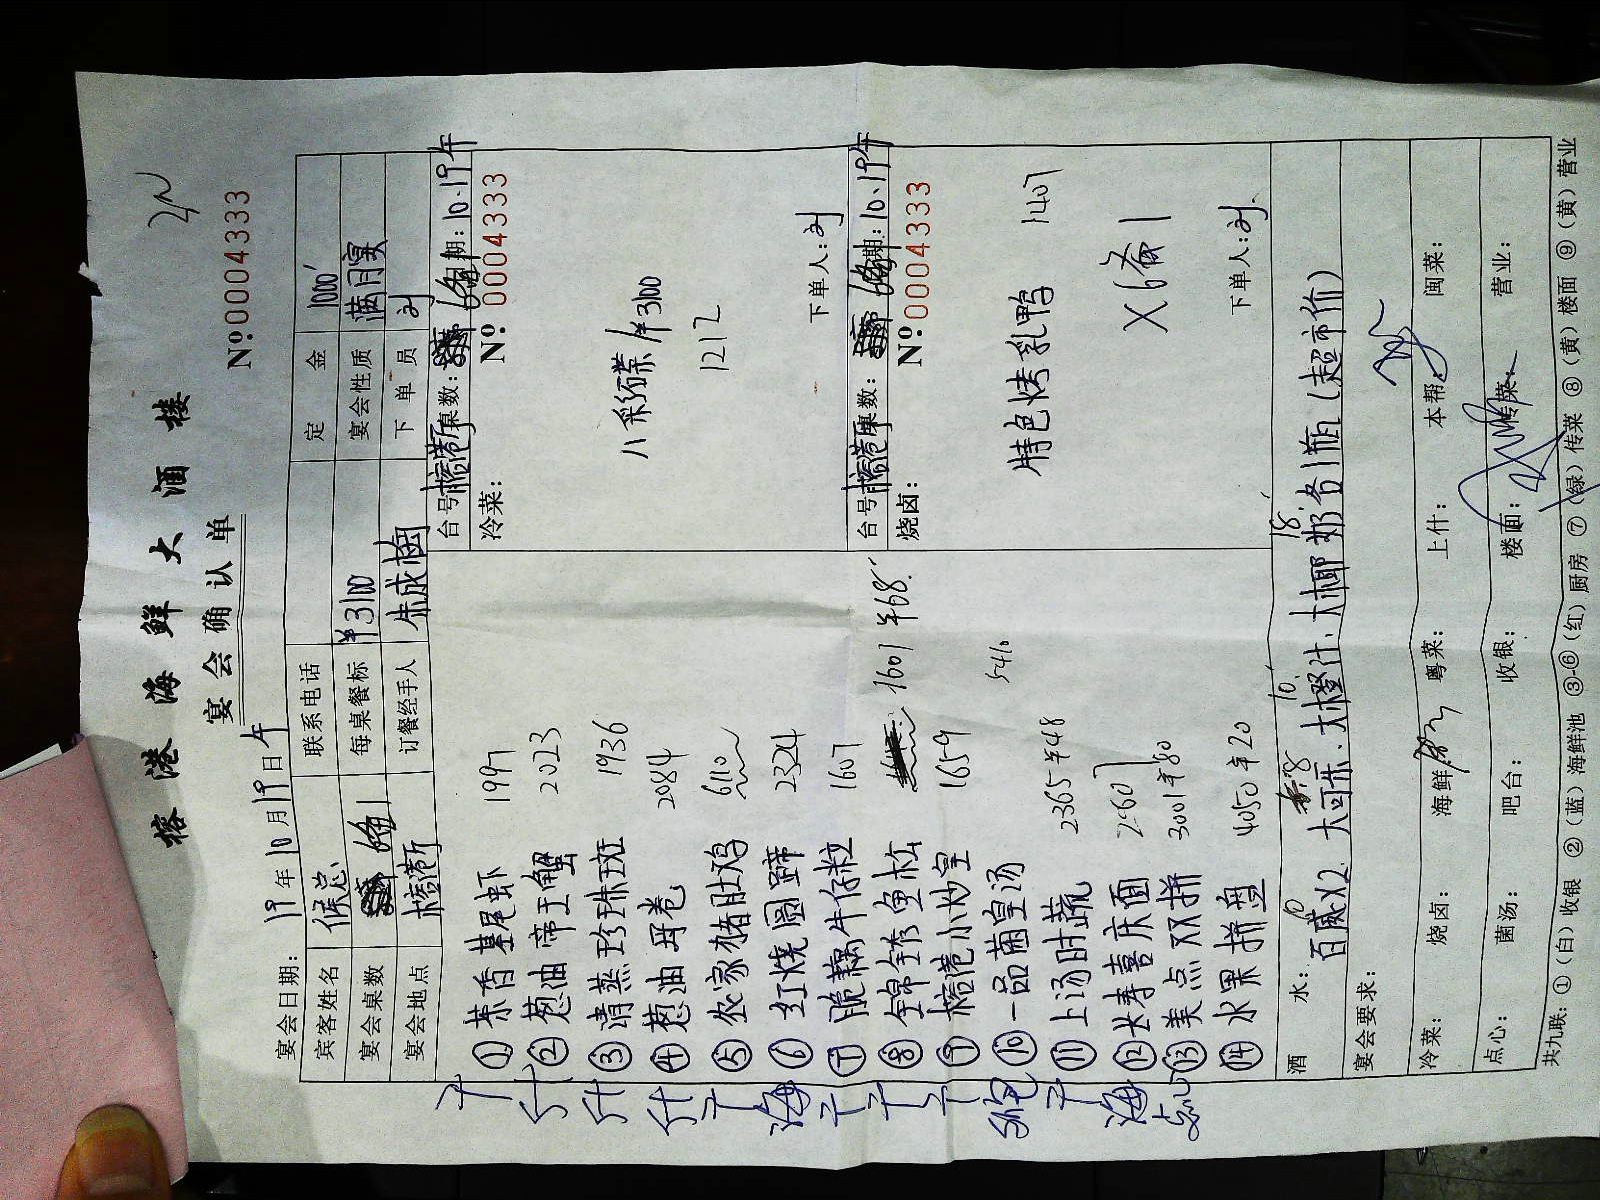 榕港海鲜大酒楼
宴会确认单
No:00004333
宴会日期: 19年10月19日午
宾客姓名 侯总 联系电话 定金 1000
宴会桌数 6备1 每桌餐标 ¥3100 宴会性质 满月宴
宴会地点 榕港厅 订餐经手人 朱成楠 下单员 刘
① 茶香基尾虾 1997
② 葱油帝王蟹 2023
③ 清蒸珍珠斑 1936
④ 葱油丹卷 2084
⑤ 农家猪肚鸡 6110
⑥ 红烧圆蹄 2324
⑦ 脆藕牛仔粒 1607
⑧ 锦绣鱼松 1601 ¥68
⑨ 榕港小炒皇 1659
⑩ 一品菌皇汤
⑪ 上汤时蔬 2365 ¥48
⑫ 长寿喜庆面 2607
⑬ 美点双拼 3001 ¥80
⑭ 水果拼盘 4050 ¥20
台号 榕港厅 桌数: 6备1 期: 10.19午
冷菜: No:00004333
八彩碟 / ¥3100
1212
下单人: 刘
台号 榕港厅 桌数: 6备1 期: 10.19午
烧卤: No:00004333
特色烤乳鸭 1407
X6备1
下单人: 刘
酒水: 百威X2、大可乐、大橙汁、大椰奶各1瓶(超市价)
10 8 10 18
宴会要求:
冷菜: 烧卤: 海鲜: 粤菜: 上什: 本帮: 闽菜:
点心: 菌汤: 吧台: 收银: 楼面: 传菜: 营业:
共九联: ①(白)收银 ②(蓝)海鲜池 ③-⑥(红)厨房 ⑦(绿)传菜 ⑧(黄)楼面 ⑨(黄)营业